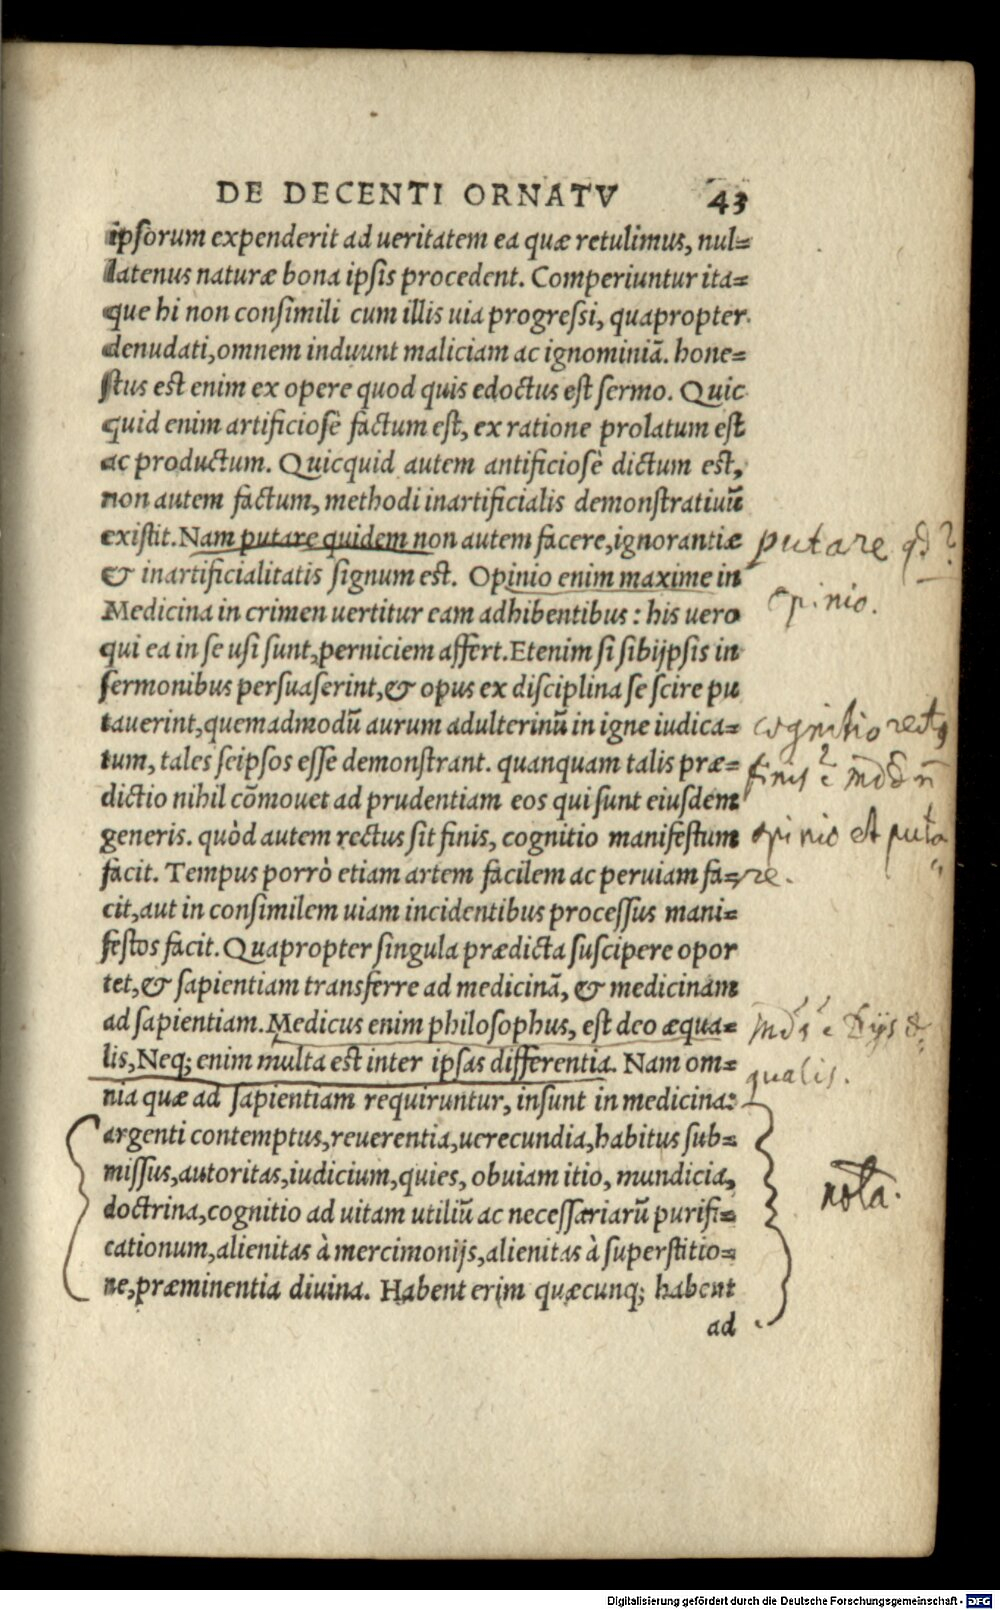 DE DECENTI ORNATV 43
ipsorum expenderit ad ueritatem ea quæ retulimus, nul=
latenus naturæ bona ipsis procedent. Comperiuntur ita=
que hi non consimili cum illis uia progressi, quapropter
denudati, omnem induunt maliciam ac ignominiā. hone=
stus est enim ex opere quod quis edoctus est sermo. Quic
quid enim artificiosè factum est, ex ratione prolatum est
ac productum. Quicquid autem antificiosè dictum est,
non autem factum, methodi inartificialis demonstratiuū
existit. Nam putare quidem non autem facere, ignorantiæ
putare qd?
& inartificialitatis signum est. Opinio enim maxime in
opinio.
Medicina in crimen uertitur eam adhibentibus: his uero
qui ea in se usi sunt, perniciem affert. Etenim si sibijpsis in
sermonibus persuaserint, & opus ex disciplina se scire pu
tauerint, quemadmodū aurum adulterinū in igne iudica=
cognitio rect9
tum, tales seipsos esse demonstrant. quanquam talis præ=
finis
dictio nihil cōmouet ad prudentiam eos qui sunt eiusdem
generis. quòd autem rectus sit finis, cognitio manifestum
opinio et puta
facit. Tempus porrò etiam artem facilem ac peruiam fa=
re.
cit, aut in consimilem uiam incidentibus processus mani=
festos facit. Quapropter singula prædicta suscipere opor
tet, & sapientiam transferre ad medicinā, & medicinam
ad sapientiam. Medicus enim philosophus, est deo æqua=
lis, Neq; enim multa est inter ipsas differentia. Nam om=
qualis.
nia quæ ad sapientiam requiruntur, insunt in medicina:
argenti contemptus, reuerentia, uerecundia, habitus sub=
missus, autoritas, iudicium, quies, obuiam itio, mundicia,
nota.
doctrina, cognitio ad uitam utiliū ac necessariarū purifi=
cationum, alienitas à mercimonijs, alienitas à superstitio=
ne, præminentia diuina. Habent erim quæcunq; habent
ad
Digitalisierung gefördert durch die Deutsche Forschungsgemeinschaft - DFG